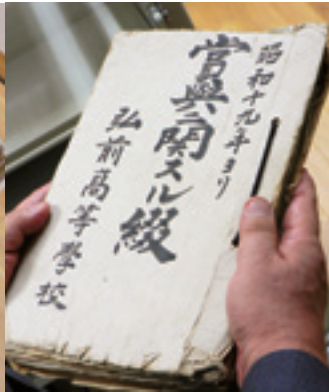 昭和十九年ヨリ
賞與ニ関スル綴
弘前高等學校